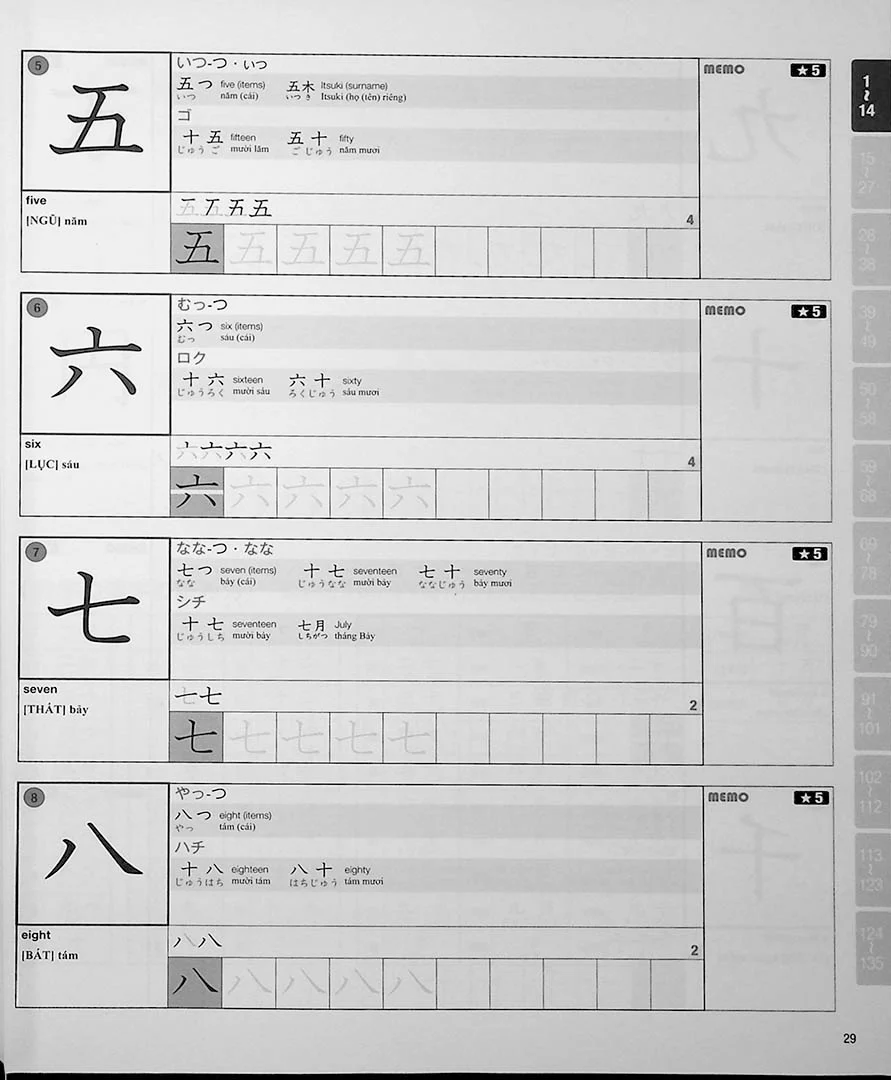 5
五
いつ-つ・いつ
五つ five (items) 五木 Itsuki (surname)
いつ năm (cái) いつ き Itsuki (họ (tên) riêng)
ゴ
十五 fifteen 五十 fifty
じゅう ご mười lăm ご じゅう năm mươi
MEMO ★5
five
[NGŨ] năm
五五五五
4
五五五五五
6
六
むっ-つ
六つ six (items)
むっ sáu (cái)
ロク
十六 sixteen 六十 sixty
じゅうろく mười sáu ろくじゅう sáu mươi
MEMO ★5
six
[LỤC] sáu
六六六六
4
六六六六六
7
七
なな-つ・なな
七つ seven (items) 十七 seventeen 七十 seventy
なな bảy (cái) じゅうなな mười bảy ななじゅう bảy mươi
シチ
十七 seventeen 七月 July
じゅうしち mười bảy しちがつ tháng Bảy
MEMO ★5
seven
[THẤT] bảy
七七
2
七七七七七
8
八
やっ-つ
八つ eight (items)
やっ tám (cái)
ハチ
十八 eighteen 八十 eighty
じゅうはち mười tám はちじゅう tám mươi
MEMO ★5
eight
[BÁT] tám
八八
2
八八八八八
1~14
15~27
26~38
39~49
50~58
59~68
69~78
79~90
91~101
102~112
113~123
124~135
29